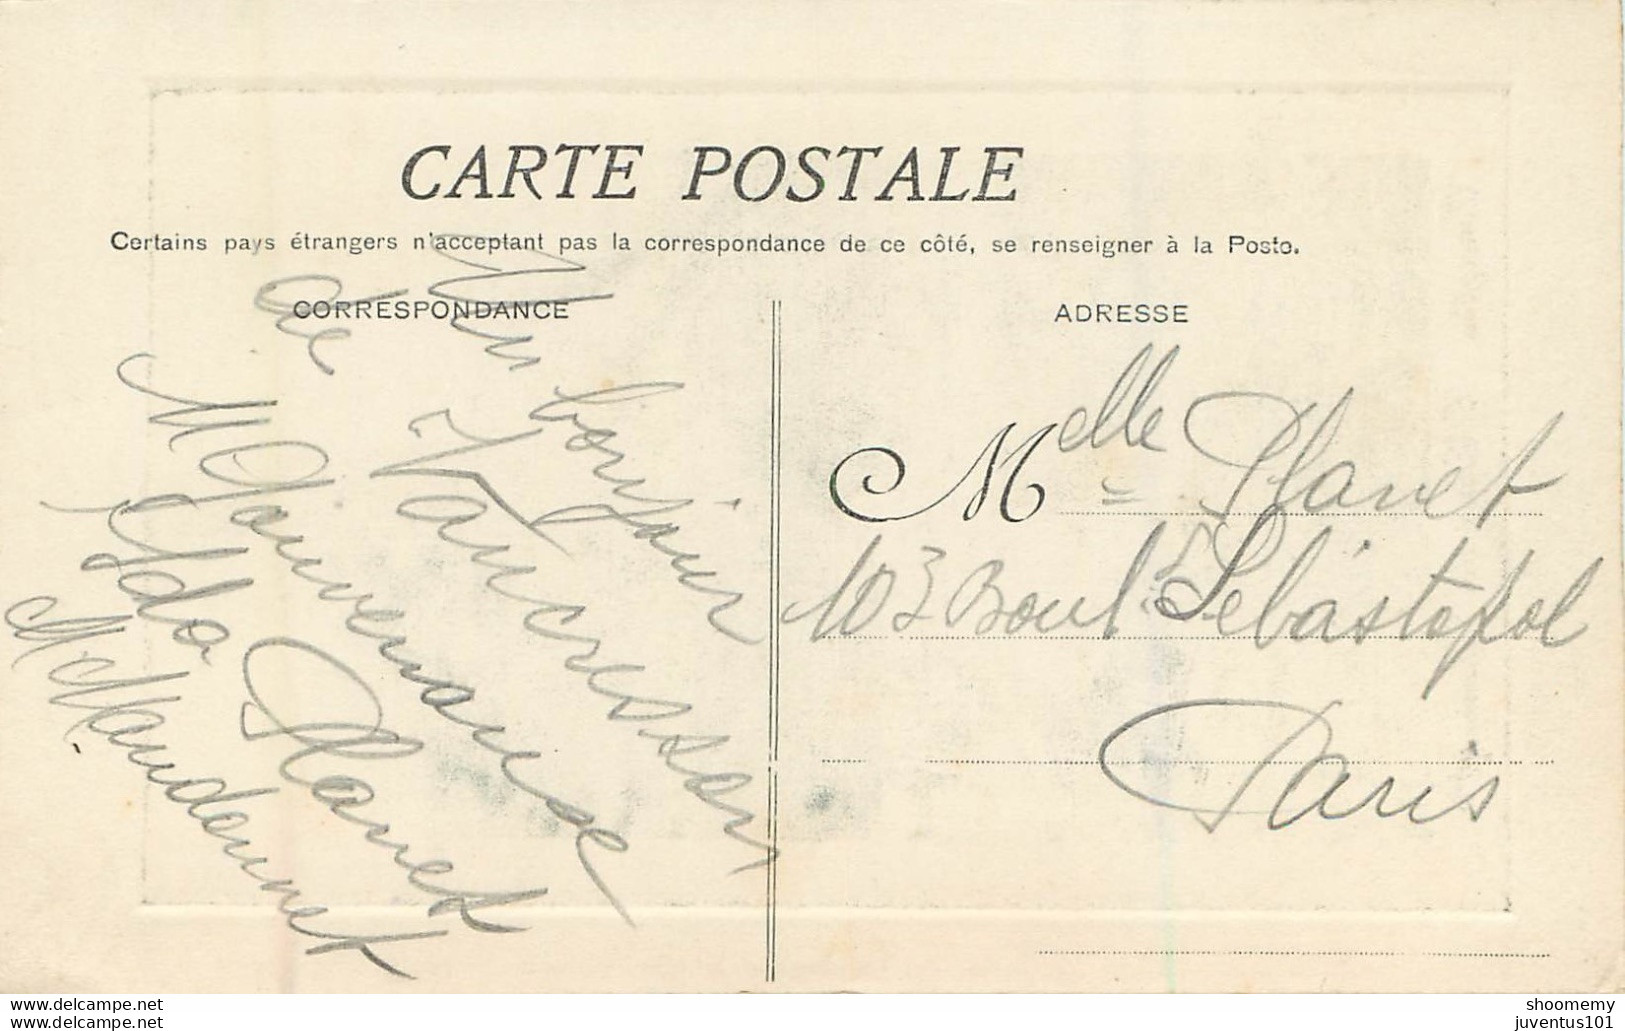 CARTE POSTALE
Certains pays étrangers n'acceptant pas la correspondance de ce côté, se renseigner à la Poste.
CORRESPONDANCE
Un bonjour
de Vaucresson
M
Ida Planet
M Maudemet
ADRESSE
Melle Planet
103 Boul d Sébastopol
Paris
www.delcampe.net
www.delcampe.net
shoomemy
juventus101